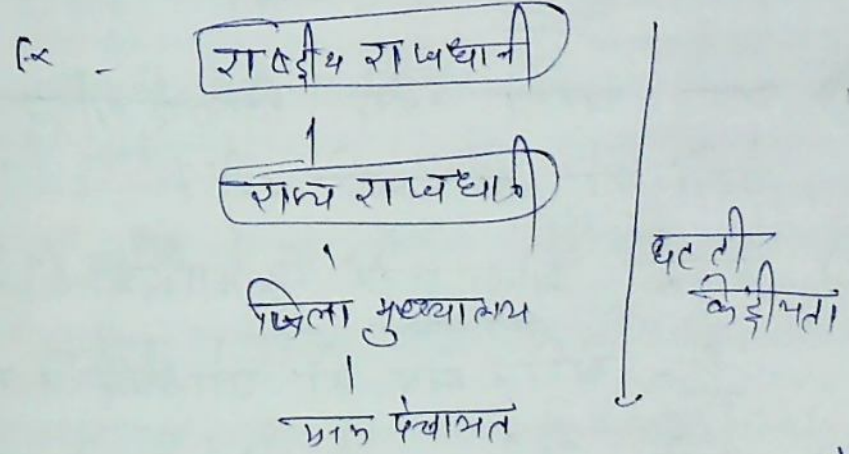 Ex -
राष्ट्रीय राजधानी
राज्य राजधानी
जिला मुख्यालय
ग्राम पंचायत
घटती
केंद्रीयता